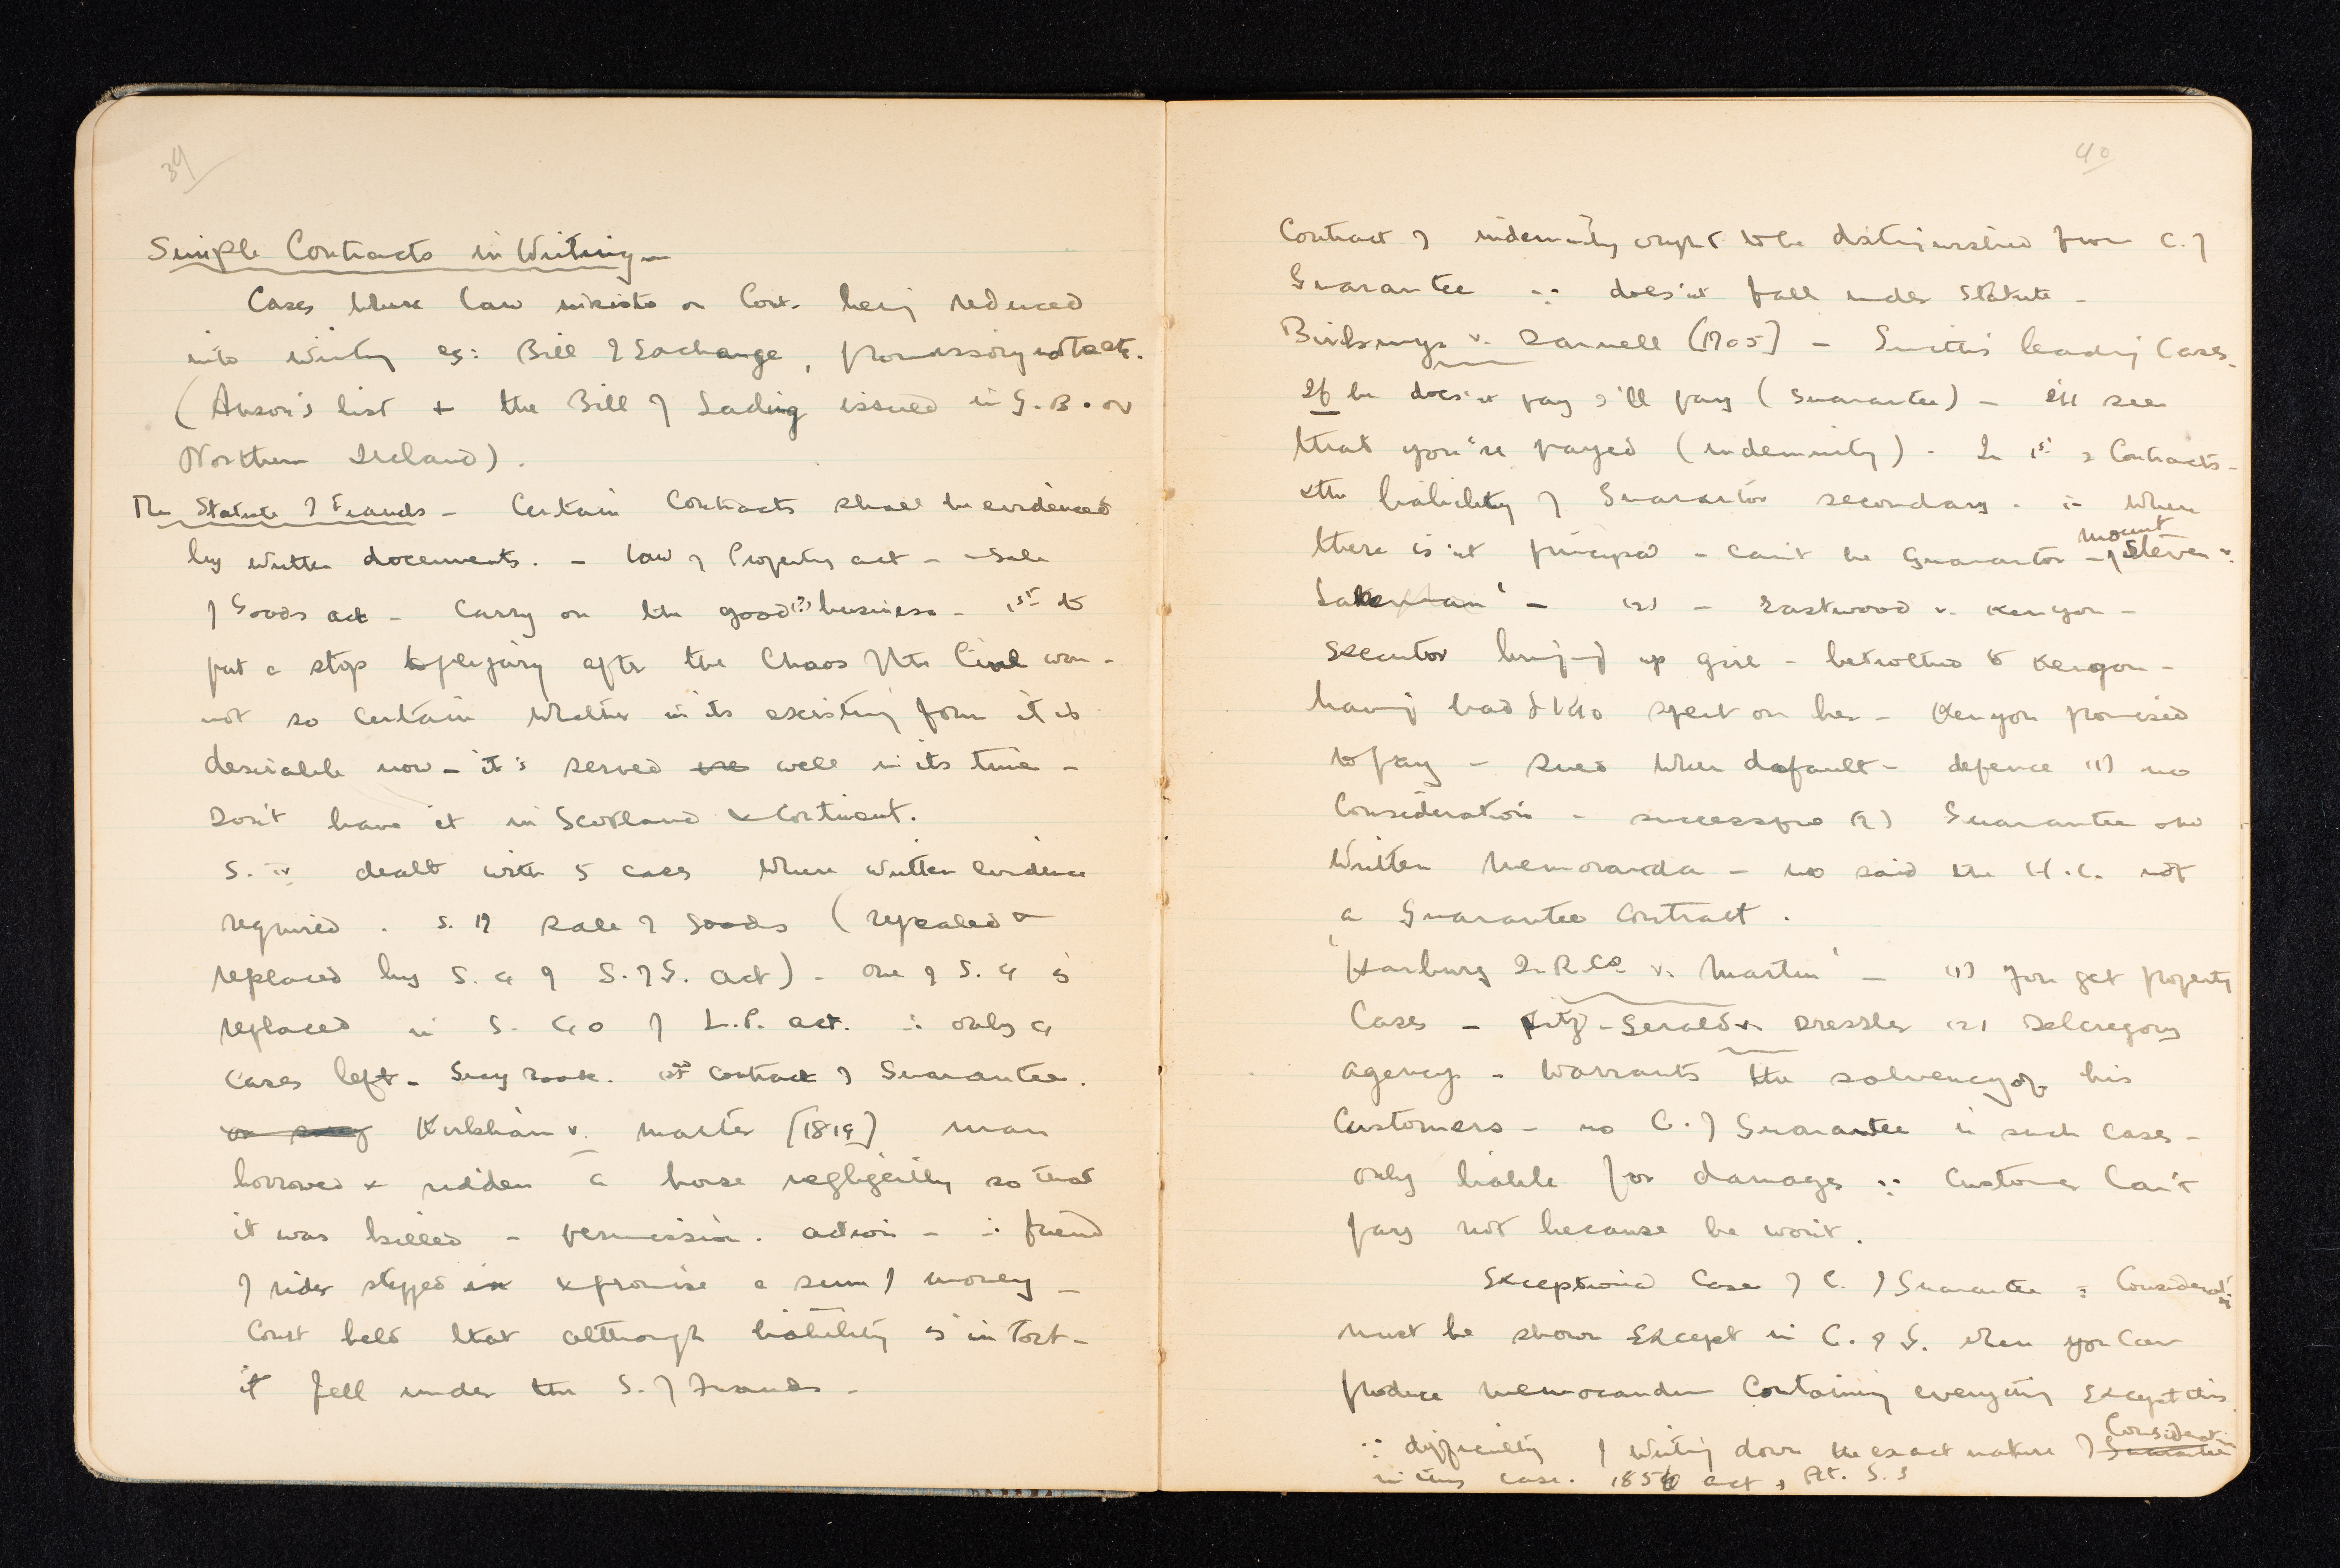 39
Simple Contracts in Writing —
Cases where law insists on Cont. being reduced
into writing eg: Bill of Exchange, promissory note etc.
(Anson's list + the Bill of Lading issued in G.B. or
Northern Ireland).
The Statute of Frauds — Certain Contracts shall be evidenced
by written documents. — Law of Property act — Sale
of Goods act — Carry on the good(?) business — 1st to
put a stop to perjury after the Chaos of the Civil war —
not so certain whether in its existing form it is
desirable now — it's served well in its time —
Don't have it in Scotland & Continent.
S. iv dealt with 5 cases where written evidence
required. S. 17 Sale of Goods (repealed &
replaced by S. 4 of S. of G. act) — One of S. 4 is
replaced in S. 40 of L.P. act. ∴ only 4
cases left — 1st Contract of Guarantee.
Kirkham v. Marter [1819] man
borrowed & ridden a horse negligently so that
it was killed — permission. action — ∴ friend
of rider stepped in & promise a sum of money —
Court held that although liability is in Tort —
it fell under the S. of Frauds —
40
Contract of indemnity ought to be distinguished from C. of
Guarantee ∵ does'nt fall under Statute —
Birkmyr v. Darnell [1705] — Smith's leading Cases.
If he does'nt pay I'll pay (Guarantee) — I'll see
that you're payed (indemnity). In 1st 2 Contracts —
& the liability of Guarantor secondary. ∴ where
there is'nt principal — can't be Guarantor — Mount Steven v.
Lakeman' — (2) — Eastwood v. Kenyon —
Executor bringing up girl — betrothed to Kenyon —
having had £140 spent on her — Kenyon promised
to pay — sued when default — defence (1) no
Consideration — successful (2) Guarantee and
written memoranda — no said the H.C. not
a Guarantee Contract.
'Harburg I. R. Co. v. Martin' — (1) you get property
Cases — Fitz-Gerald v. Dressler (2) Delcregory
agency — warrants the solvency of his
Customers — no C. of Guarantee in such cases —
only liable for damages ∵ Customer Can't
pay not because he won't.
Exceptional Case of C. of Guarantee : Consideration
must be shown Except in C. of G. when you can
produce memorandum Containing everything Except this
∵ difficulty of writing down the exact nature of Guarantee Considerat.
in this case. 1856 act, S. 3